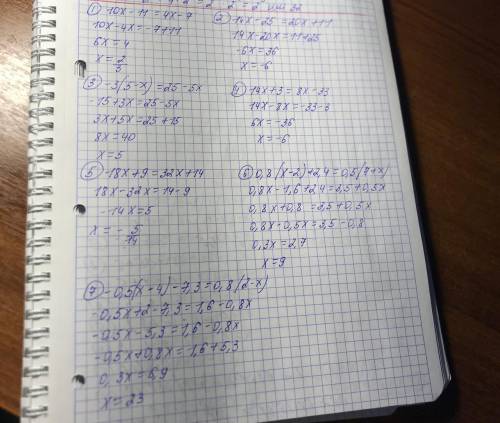 ① 10x-11=4x-7
10x-4x=-7+11
6x=4
x=2/3
② 14x-25=20x+11
14x-20x=11+25
-6x=36
x=-6
③ -3(5-x)=25-5x
-15+3x=25-5x
3x+5x=25+15
8x=40
x=5
④ 14x+3=8x-33
14x-8x=-33-3
6x=-36
x=-6
⑤ 18x+9=32x+14
18x-32x=14-9
-14x=5
x=-5/14
⑥ 0,8(x-2)+2,4=0,5(7+x)
0,8x-1,6+2,4=3,5+0,5x
0,8x+0,8=3,5+0,5x
0,8x-0,5x=3,5-0,8
0,3x=2,7
x=9
⑦ -0,5(x-4)-7,3=0,8(2-x)
-0,5x+2-7,3=1,6-0,8x
-0,5x-5,3=1,6-0,8x
-0,5x+0,8x=1,6+5,3
0,3x=6,9
x=23